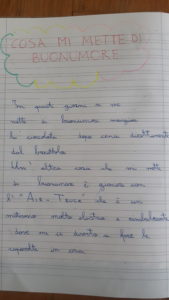 COSA MI METTE DI
BUONUMORE
In questi giorni a me
mette di buonumore mangiare
la cioccolata dopo cena direttamente
dal barattolo
Un' altra cosa che mi mette
di buonumore è giocare con
l' Air-Track che è un
materasso molto elastico e
dove mi diverto a fare le
capovolte in casa